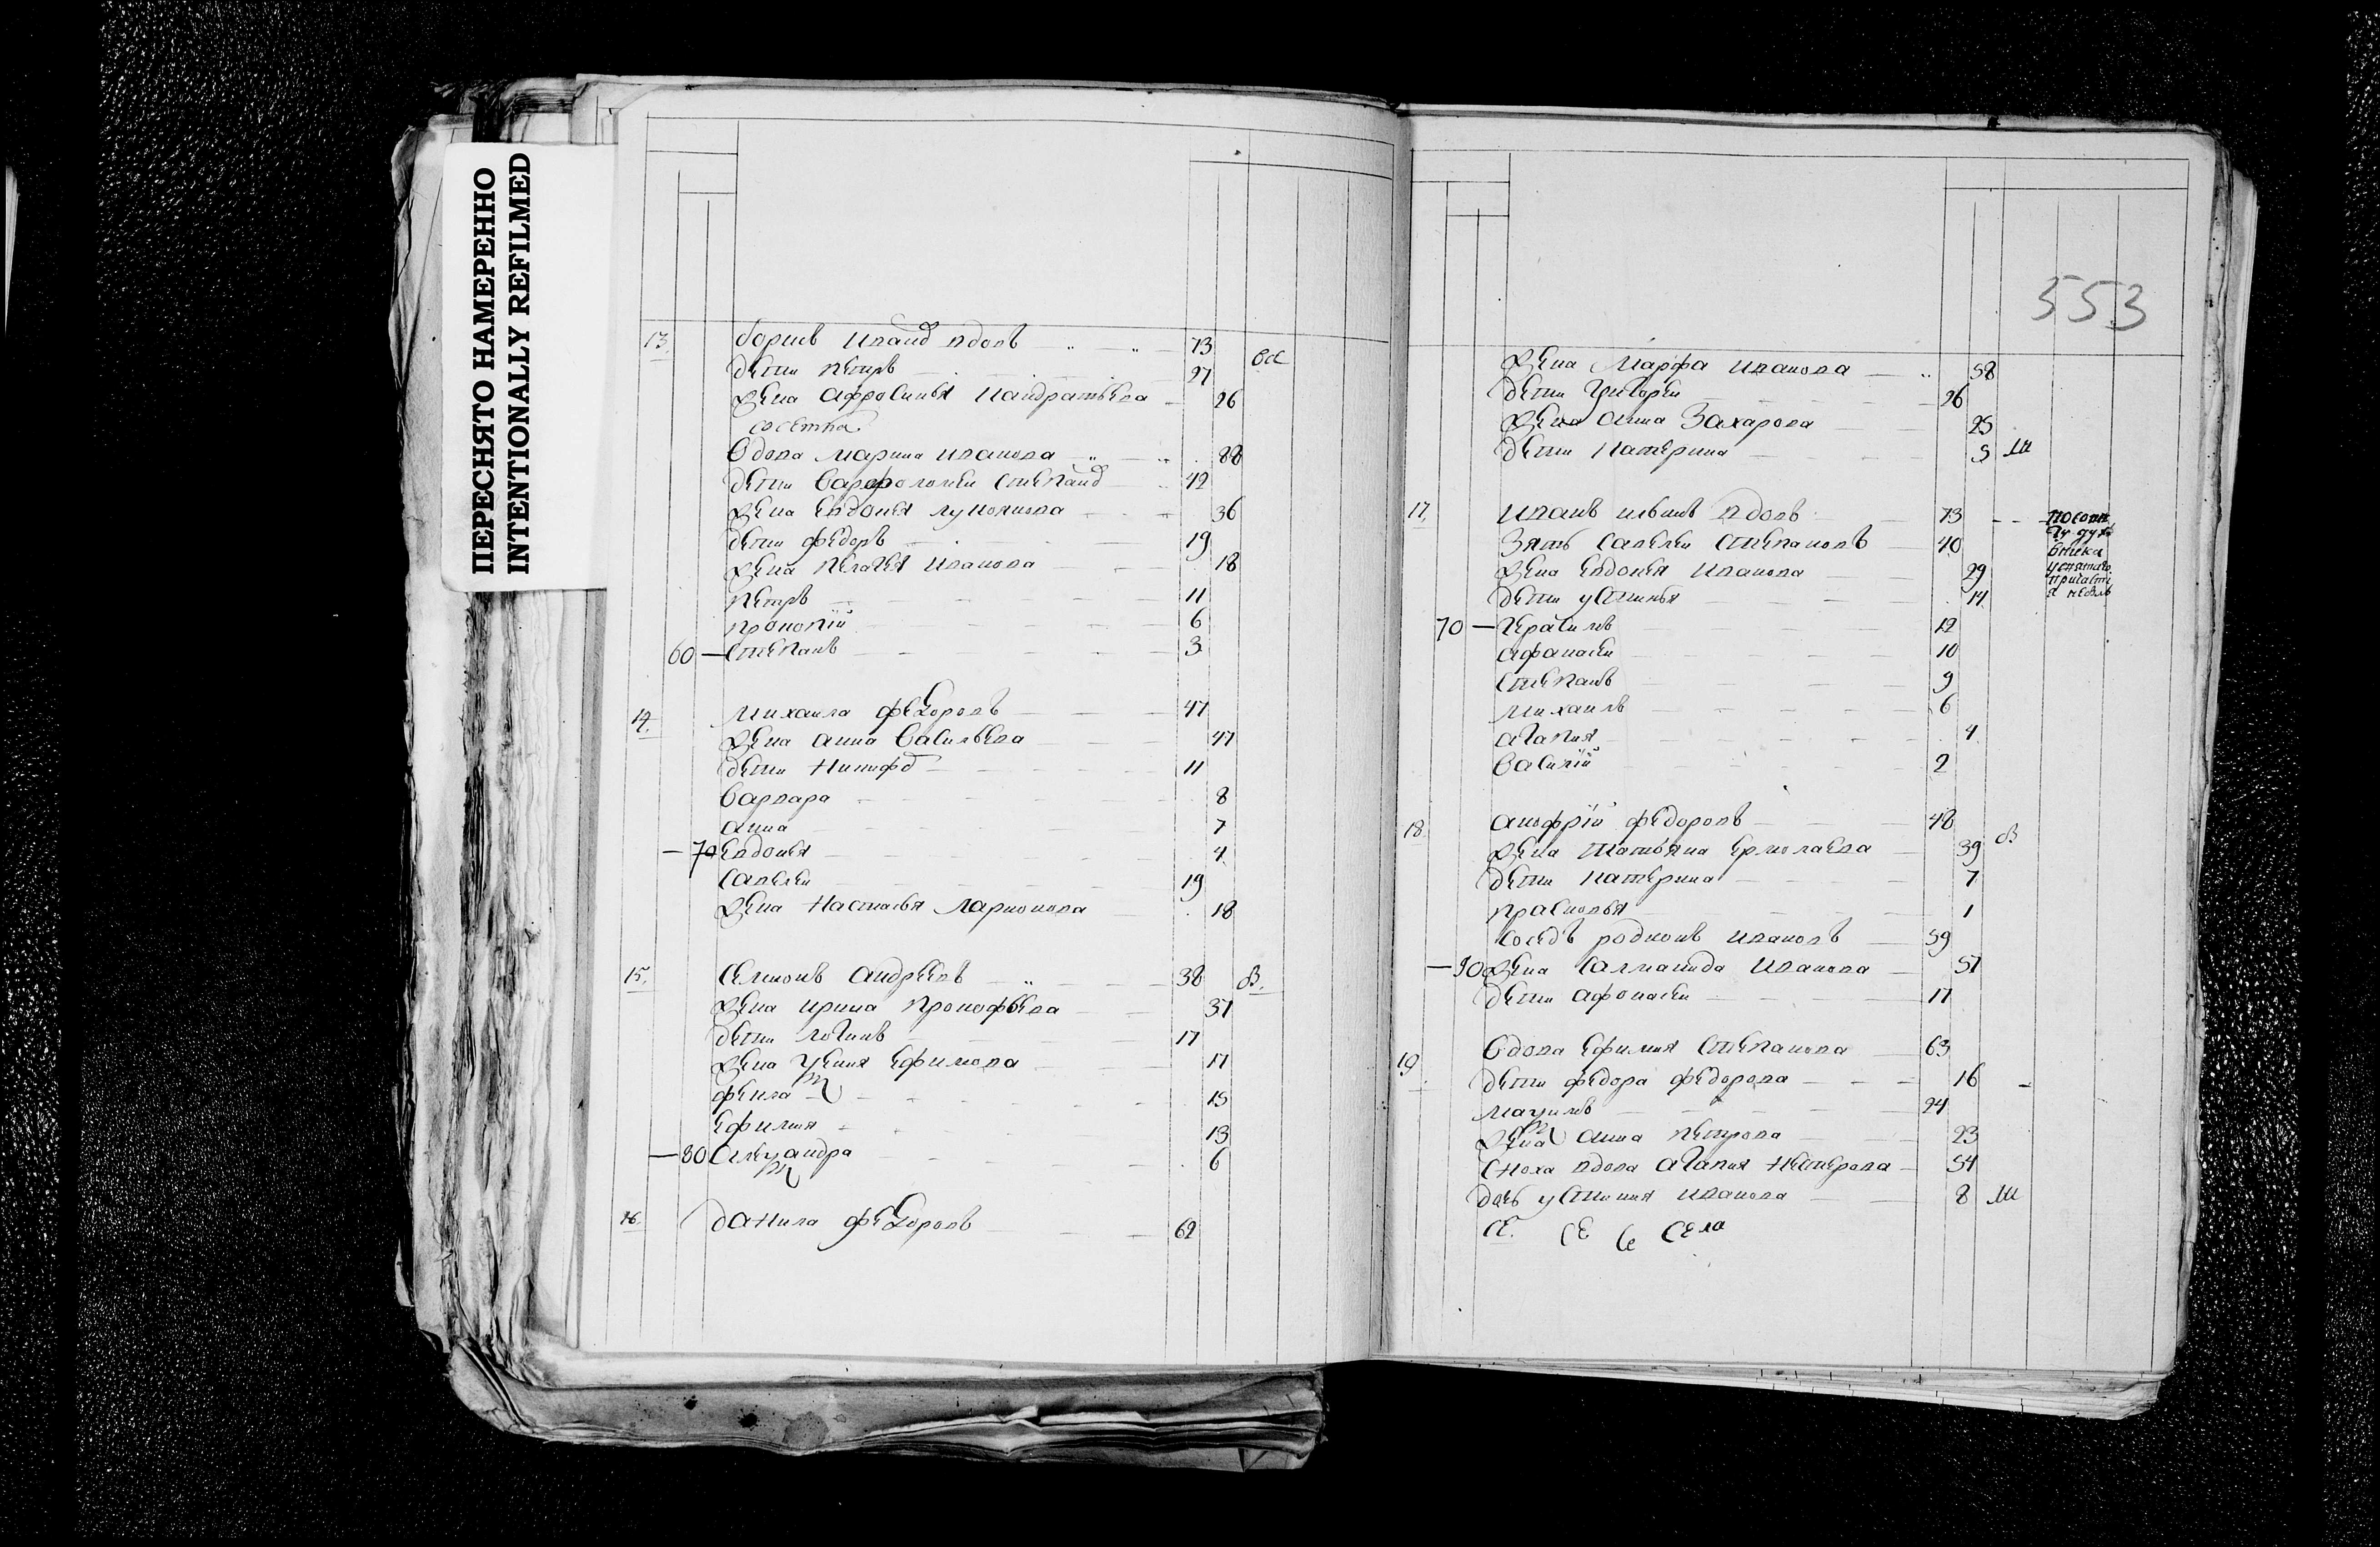 ПЕРЕСНЯТО НАМЕРЕННО
INTENTIONALLY REFILMED
13. борисъ иванов вдовъ 73
дети петръ 27
жена афросинья кандратьева 26
вдова марина иванова 88
дети варфоломеи степанов 42
жена евдокея лукоянова 36
дети федоръ 19
жена пелагея иванова 18
петръ 11
прокопїй 6
60 — степанъ 3
14. михаила федоровъ 47
жена анна васильева 47
дети никифо 11
варвара 8
анна 7
— 70 евдокея 4
савелеи 19
жена настасья ларионова 18
15. семионъ андреевъ 38 В.
жена ирина прокофьева 37
дети логинъ 17
жена ксения ефимова 17
фекла 15
ефимия 13
— 80 александра 6
16. данила федоровъ 62
553
жена марфа иванова 58
дети григореи 26
жена анна захарова 25
дети катерина 3 Ш
17. иванъ ильинъ вдовъ 73
зять савелеи степановъ 40
жена евдокея иванова 29
дети устинья 14
70 — герасимъ 12
афанасеи 10
степанъ 9
михаилъ 6
агапия 4
василїй 2
18. анофрїй федоровъ 48 В
жена татьяна ермолаева 39
дети катерина 7
прасковья 1
соседъ родионъ иванов 59
— 90 жена саломанида иванова 57
дети афонасеи 17
19. вдова ефимия степанова 63
дети федора федорова 16
мануилъ 24
жена анна петрова 23
сноха вдова агапия нестерова 54
дочь устиния иванова 8 Ш
се. се се села